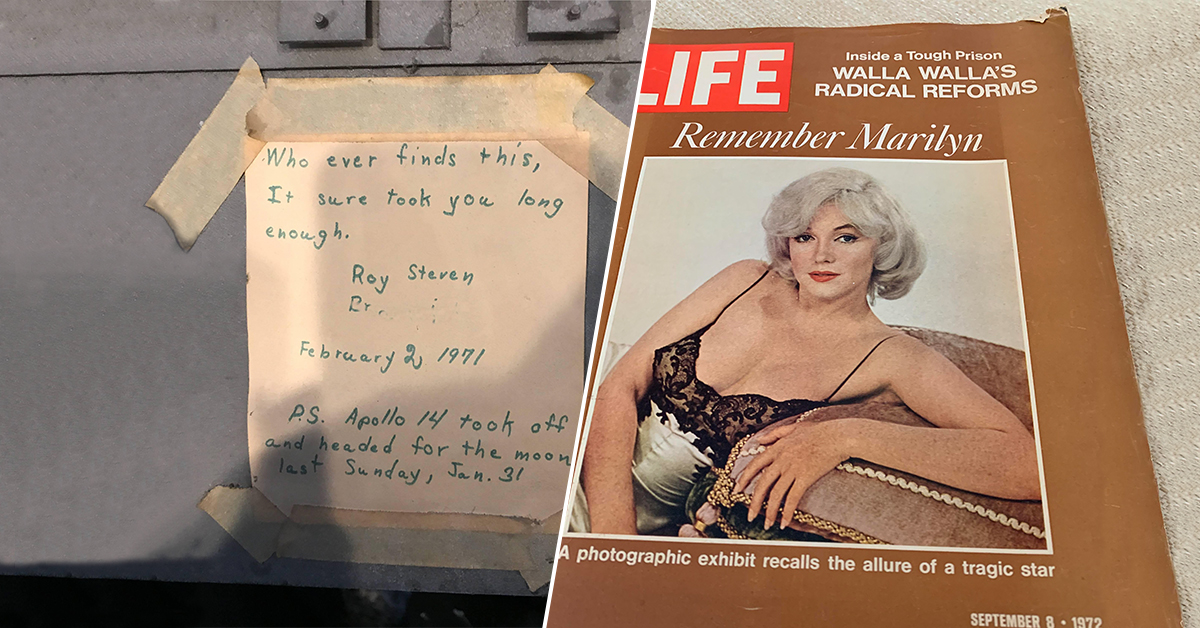 Who ever finds this,
It sure took you long
enough.
Roy Steven
Br.
February 2, 1971
P.S. Apollo 14 took off
and headed for the moon
last Sunday, Jan. 31
LIFE
Inside a Tough Prison
WALLA WALLA'S
RADICAL REFORMS
Remember Marilyn
A photographic exhibit recalls the allure of a tragic star
SEPTEMBER 8 • 1972